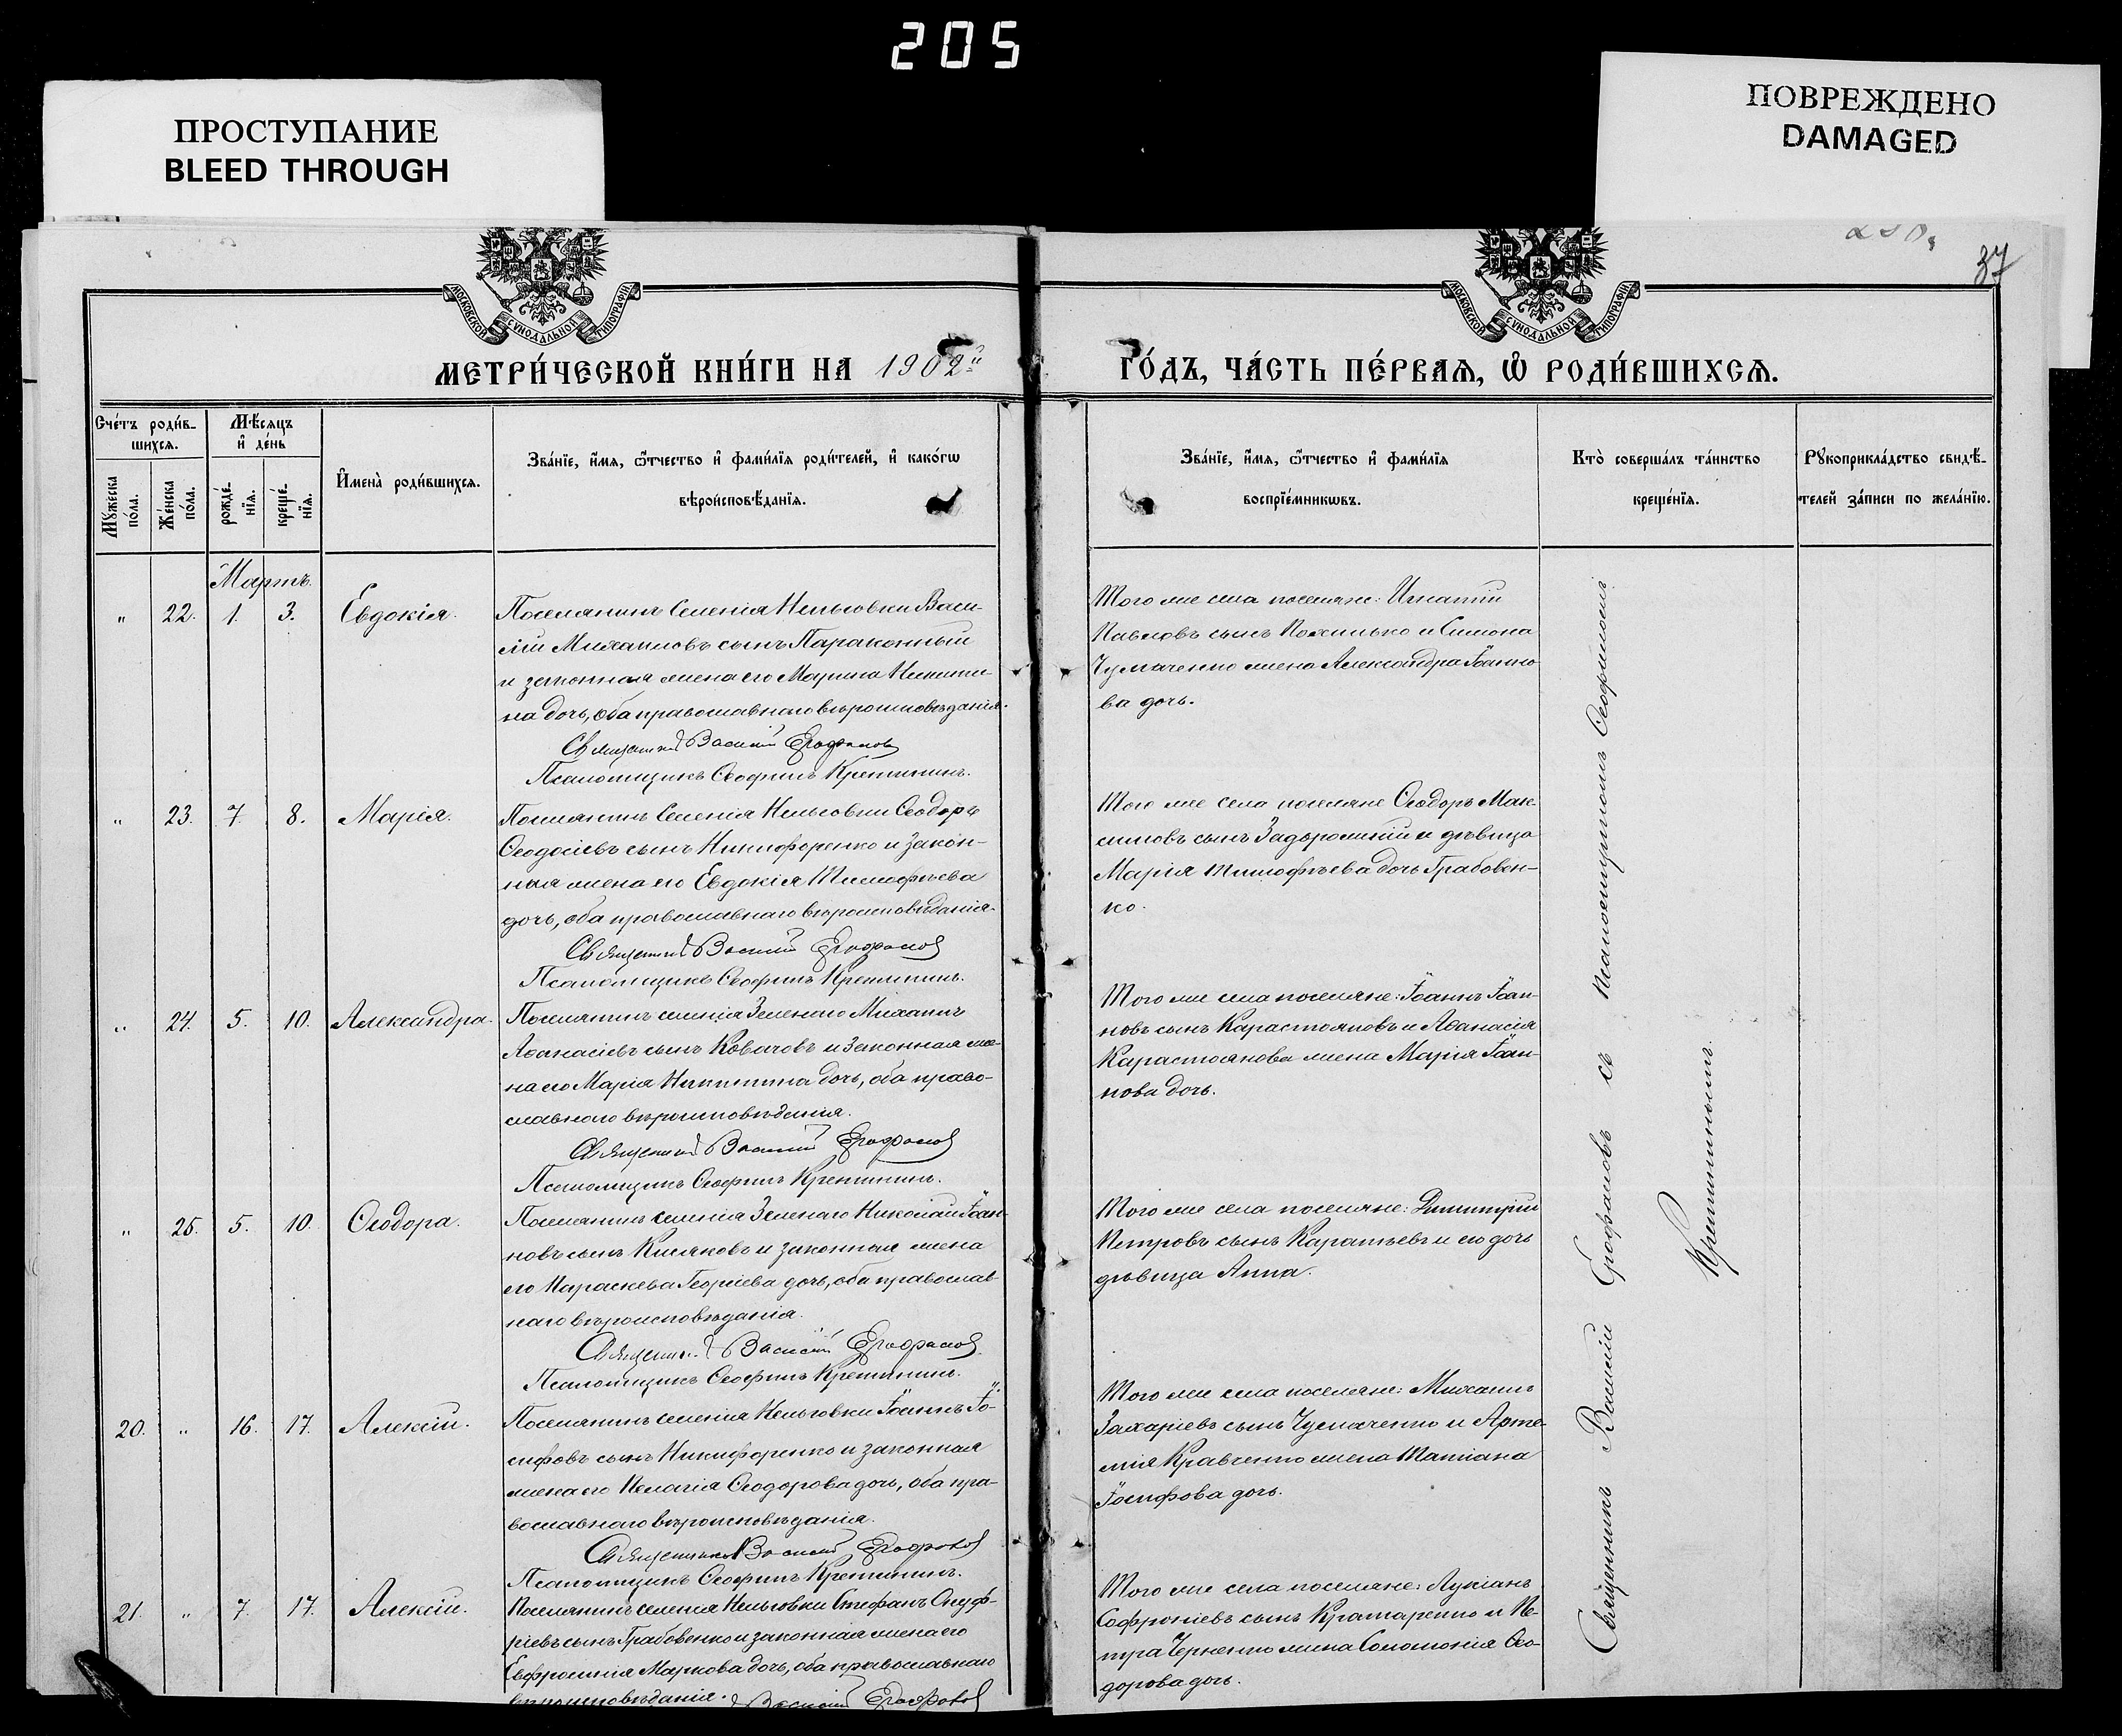 205
ПРОСТУПАНИЕ
BLEED THROUGH
ПОВРЕЖДЕНО
DAMAGED
37
МОСКОВСКОЙ СѴНОДАЛЬНОЙ ТИПОГРАФІИ
МОСКОВСКОЙ СѴНОДАЛЬНОЙ ТИПОГРАФІИ
МЕТРИ́ЧЕСКОЙ КНИ́ГИ НА 1902й
ГО́ДЪ, ЧА́СТЬ ПЕ́РВАѦ, Ѽ РОДИ́ВШИХСѦ.
Сче́тъ роди́в-
шихсѧ.
Мѣ́сѧцъ
и҆ де́нь
Мꙋ́жеска по́ла.
Же́нска по́ла.
рожде́-нїѧ.
креще́-нїѧ.
И҆мена̀ роди́вшихсѧ.
Зва́нїе, и҆́мѧ, ѻ҆́тчество и҆ фами́лїѧ роди́телей, и҆ како́гѡ
вѣроисповѣ́данїѧ.
Зва́нїе, и҆́мѧ, ѻ҆́тчество и҆ фами́лїѧ
воспрїе́мникѡвъ.
Кто̀ соверша́лъ та́инство
креще́нїѧ.
Рꙋкоприкла́дство свидѣ́-
телей за́писи по жела́нїю.
Мартъ.
" 22. 1. 3. Евдокія.
Поселянинъ селенія Нельговки Васи-
лій Михаиловъ сынъ Параконный
и законная жена его Марина Никити-
на дочь, оба православнаго вѣроисповѣданія.
Священникъ Василій Ерофаловъ
Псаломщикъ Ѳеофилъ Кретининъ.
Того же села поселяне: Игнатій
Павловъ сынъ и Симона
Чумаченко жена Александра Іоанно-
ва дочь.
" 23. 7. 8. Марія.
Поселянинъ селенія Нельговки Ѳеодоръ
Ѳеодосіевъ сынъ Никифоренко и закон-
ная жена его Евдокія Тимофѣева
дочь, оба православнаго вѣроисповѣданія.
Священникъ Василій Ерофаловъ
Псаломщикъ Ѳеофилъ Кретининъ.
Того же села поселяне Ѳеодоръ Мак-
симовъ сынъ Задорожній и дѣвица
Марія Тимофѣева дочь Грабовен-
ко.
" 24. 5. 10. Александра.
Поселянинъ селенія Зеленаго Михаилъ
Аѳанасіевъ сынъ Ковачовъ и законная же-
на его Марія Никитина дочь, оба право-
славнаго вѣроисповѣданія.
Священникъ Василій Ерофаловъ
Псаломщикъ Ѳеофилъ Кретининъ.
Того же села поселяне: Іоаннъ Іоан-
новъ сынъ Карастояновъ и Аѳанасія
Карастоянова жена Марія Іоан-
нова дочь.
" 25. 5. 10. Ѳеодора.
Поселянинъ селенія Зеленаго Николай Іоан-
новъ сынъ Кисяковъ и законная жена
его Параскева Георгіева дочь, оба православ-
наго вѣроисповѣданія.
Священникъ Василій Ерофаловъ
Псаломщикъ Ѳеофилъ Кретининъ.
Того же села поселяне: Димитрій
Петровъ сынъ и его дочь
дѣвица Анна.
20. " 16. 17. Алексій.
Поселянинъ селенія Нельговки Іоаннъ Іо-
сифовъ сынъ Никифоренко и законная
жена его Пелагія Ѳеодорова дочь, оба пра-
вославнаго вѣроисповѣданія.
Священникъ Василій Ерофаловъ
Псаломщикъ Ѳеофилъ Кретининъ.
Того же села поселяне: Михаилъ
Захаріевъ сынъ Чумаченко и Арте-
мія Кравченко жена Татіана
Іосифова дочь.
21. " 7. 17. Алексій.
Поселянинъ селенія Нельговки Стефанъ Онуф-
ріевъ сынъ Грабовенко и законная жена его
Евфросинія Маркова дочь, оба православнаго
вѣроисповѣданія. Василій Ерофаловъ
Того же села поселяне: Лукіанъ
Софроніевъ сынъ Кратаренко и Пе-
тра Черненко жена Соломонія Ѳео-
дорова дочь.
Священникъ Василій Ерофаловъ съ псаломщикомъ Ѳеофиломъ
Кретининымъ.